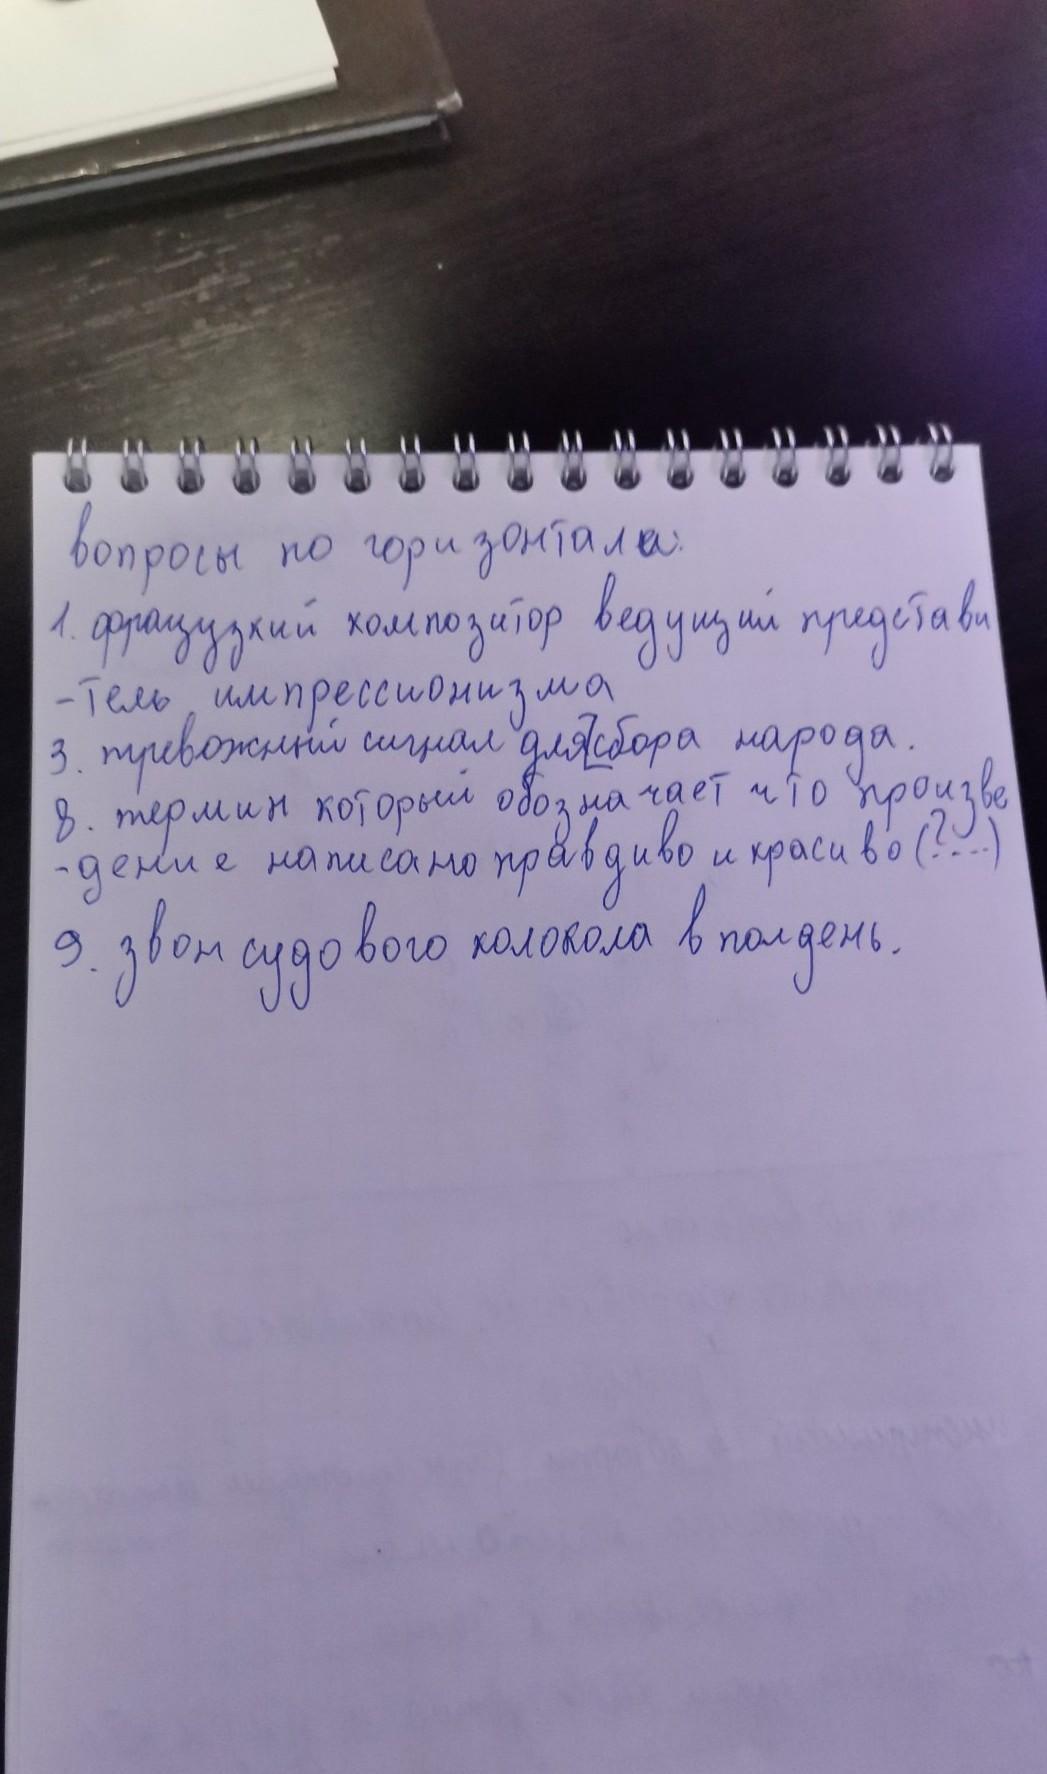 вопросы по горизонтали:
1. французкий композитор ведущий представи
-тель импрессионизма
3. тревожный сигнал для сбора народа.
8. термин который обозначает что произве
-дение написано правдиво и красиво (?....)
9. звон судового колокола в полдень.